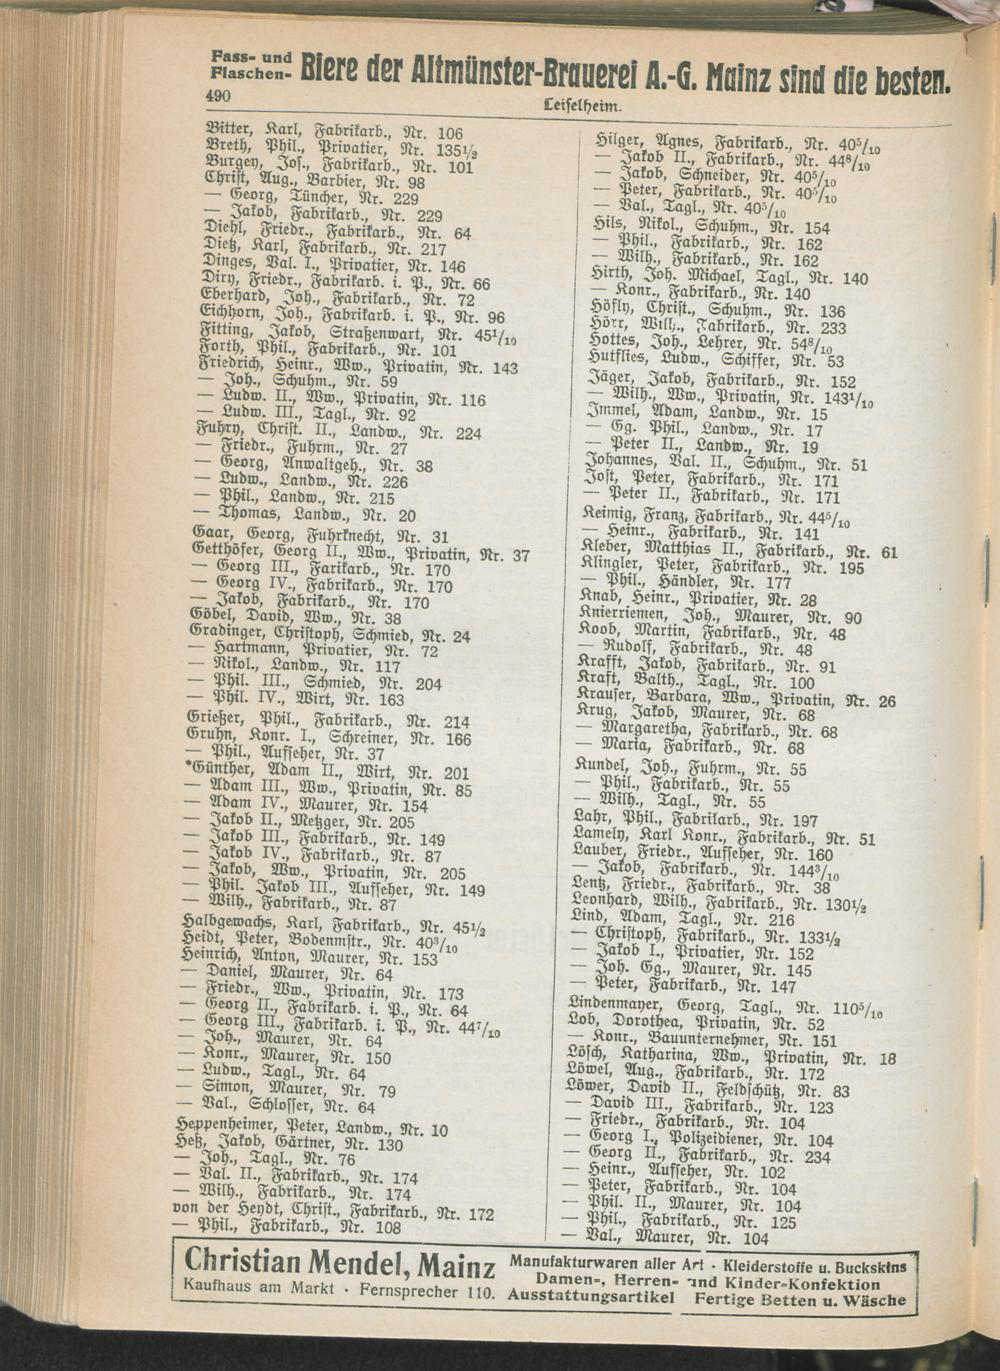 Fass- und
Flaschen- Biere der Altmünster-Brauerei A.-G. Mainz sind die besten.
490
Leiselheim.
Bitter, Karl, Fabrikarb., Nr. 106
Breth, Phil., Privatier, Nr. 135½
Burgey, Jos., Fabrikarb., Nr. 101
Christ, Aug., Barbier, Nr. 98
— Georg, Tüncher, Nr. 229
— Jakob, Fabrikarb., Nr. 229
Diehl, Friedr., Fabrikarb., Nr. 64
Dietz, Karl, Fabrikarb., Nr. 217
Dinges, Val. I., Privatier, Nr. 146
Diry, Friedr., Fabrikarb. i. P., Nr. 66
Eberhard, Joh., Fabrikarb., Nr. 72
Eichhorn, Joh., Fabrikarb. i. P., Nr. 96
Fitting, Jakob, Straßenwart, Nr. 45¹/₁₀
Forth, Phil., Fabrikarb., Nr. 101
Friedrich, Heinr., Ww., Privatin, Nr. 143
— Joh., Schuhm., Nr. 59
— Ludw. II., Ww., Privatin, Nr. 116
— Ludw. III., Tagl., Nr. 92
Fuhry, Christ. II., Landw., Nr. 224
— Friedr., Fuhrm., Nr. 27
— Georg, Anwaltgeh., Nr. 38
— Ludw., Landw., Nr. 226
— Phil., Landw., Nr. 215
— Thomas, Landw., Nr. 20
Gaar, Georg, Fuhrknecht, Nr. 31
Getthöfer, Georg II., Ww., Privatin, Nr. 37
— Georg III., Farikarb., Nr. 170
— Georg IV., Fabrikarb., Nr. 170
— Jakob, Fabrikarb., Nr. 170
Göbel, David, Ww., Nr. 38
Gradinger, Christoph, Schmied, Nr. 24
— Hartmann, Privatier, Nr. 72
— Nikol., Landw., Nr. 117
— Phil. III., Schmied, Nr. 204
— Phil. IV., Wirt, Nr. 163
Grießer, Phil., Fabrikarb., Nr. 214
Gruhn, Konr. I., Schreiner, Nr. 166
— Phil., Aufseher, Nr. 37
*Günther, Adam II., Wirt, Nr. 201
— Adam III., Ww., Privatin, Nr. 85
— Adam IV., Maurer, Nr. 154
— Jakob II., Metzger, Nr. 205
— Jakob III., Fabrikarb., Nr. 149
— Jakob IV., Fabrikarb., Nr. 87
— Jakob, Ww., Privatin, Nr. 205
— Phil. Jakob III., Aufseher, Nr. 149
— Wilh., Fabrikarb., Nr. 87
Halbgewachs, Karl, Fabrikarb., Nr. 45½
Heidt, Peter, Bodenmstr., Nr. 40³/₁₀
Heinrich, Anton, Maurer, Nr. 153
— Daniel, Maurer, Nr. 64
— Friedr., Ww., Privatin, Nr. 173
— Georg II., Fabrikarb. i. P., Nr. 64
— Georg III., Fabrikarb. i. P., Nr. 44⁷/₁₀
— Joh., Maurer, Nr. 64
— Konr., Maurer, Nr. 150
— Ludw., Tagl., Nr. 64
— Simon, Maurer, Nr. 79
— Val., Schlosser, Nr. 64
Heppenheimer, Peter, Landw., Nr. 10
Heß, Jakob, Gärtner, Nr. 130
— Joh., Tagl., Nr. 76
— Val. II., Fabrikarb., Nr. 174
— Wilh., Fabrikarb., Nr. 174
von der Heydt, Christ., Fabrikarb., Nr. 172
— Phil., Fabrikarb., Nr. 108
Hilger, Agnes, Fabrikarb., Nr. 40⁵/₁₀
— Jakob II., Fabrikarb., Nr. 44⁸/₁₀
— Jakob, Schneider, Nr. 40⁵/₁₀
— Peter, Fabrikarb., Nr. 40⁵/₁₀
— Val., Tagl., Nr. 40⁵/₁₀
Hils, Nikol., Schuhm., Nr. 154
— Phil., Fabrikarb., Nr. 162
— Wilh., Fabrikarb., Nr. 162
Hirth, Joh. Michael, Tagl., Nr. 140
— Konr., Fabrikarb., Nr. 140
Höfly, Christ., Schuhm., Nr. 136
Hörr, Will,., Fabrikarb., Nr. 233
Hottes, Joh., Lehrer, Nr. 54⁸/₁₀
Hutflies, Ludw., Schiffer, Nr. 53
Jäger, Jakob, Fabrikarb., Nr. 152
— Wilh., Ww., Privatin, Nr. 143¹/₁₀
Immel, Adam, Landw., Nr. 15
— Gg. Phil., Landw., Nr. 17
— Peter II., Landw., Nr. 19
Johannes, Val. II., Schuhm., Nr. 51
Jost, Peter, Fabrikarb., Nr. 171
— Peter II., Fabrikarb., Nr. 171
Keimig, Franz, Fabrikarb., Nr. 44⁵/₁₀
— Heinr., Fabrikarb., Nr. 141
Kleber, Matthias II., Fabrikarb., Nr. 61
Klingler, Peter, Fabrikarb., Nr. 195
— Phil., Händler, Nr. 177
Knab, Heinr., Privatier, Nr. 28
Knierriemen, Joh., Maurer, Nr. 90
Koob, Martin, Fabrikarb., Nr. 48
— Rudolf, Fabrikarb., Nr. 48
Krafft, Jakob, Fabrikarb., Nr. 91
Kraft, Balth., Tagl., Nr. 100
Krauser, Barbara, Ww., Privatin, Nr. 26
Krug, Jakob, Maurer, Nr. 68
— Margaretha, Fabrikarb., Nr. 68
— Maria, Fabrikarb., Nr. 68
Kundel, Joh., Fuhrm., Nr. 55
— Phil., Fabrikarb., Nr. 55
— Wilh., Tagl., Nr. 55
Lahr, Phil., Fabrilarb., Nr. 197
Lamely, Karl Konr., Fabrikarb., Nr. 51
Lauber, Friedr., Aufseher, Nr. 160
— Jakob, Fabrikarb., Nr. 144³/₁₀
Lentz, Friedr., Fabrikarb., Nr. 38
Leonhard, Wilh., Fabrikarb., Nr. 130½
Lind, Adam, Tagl., Nr. 216
— Christoph, Fabrikarb., Nr. 133½
— Jakob I., Privatier, Nr. 152
— Joh. Gg., Maurer, Nr. 145
— Peter, Fabrikarb., Nr. 147
Lindenmayer, Georg, Tagl., Nr. 110⁵/₁₀
Lob, Dorothea, Privatin, Nr. 52
— Konr., Bauunternehmer, Nr. 151
Lösch, Katharina, Ww., Privatin, Nr. 18
Löwel, Aug., Fabrikarb., Nr. 172
Löwer, David II., Feldschütz, Nr. 83
— David III., Fabrikarb., Nr. 123
— Friedr., Fabrikarb., Nr. 104
— Georg I., Polizeidiener, Nr. 104
— Georg II., Fabrikarb., Nr. 234
— Heinr., Aufseher, Nr. 102
— Peter, Fabrikarb., Nr. 104
— Phil. II., Maurer, Nr. 104
— Phil., Fabrikarb., Nr. 125
— Val., Maurer, Nr. 104
Christian Mendel, Mainz
Kaufhaus am Markt · Fernsprecher 110.
Manufakturwaren aller Art · Kleiderstoffe u. Buckskins
Damen-, Herren- und Kinder-Konfektion
Ausstattungsartikel Fertige Betten u. Wäsche